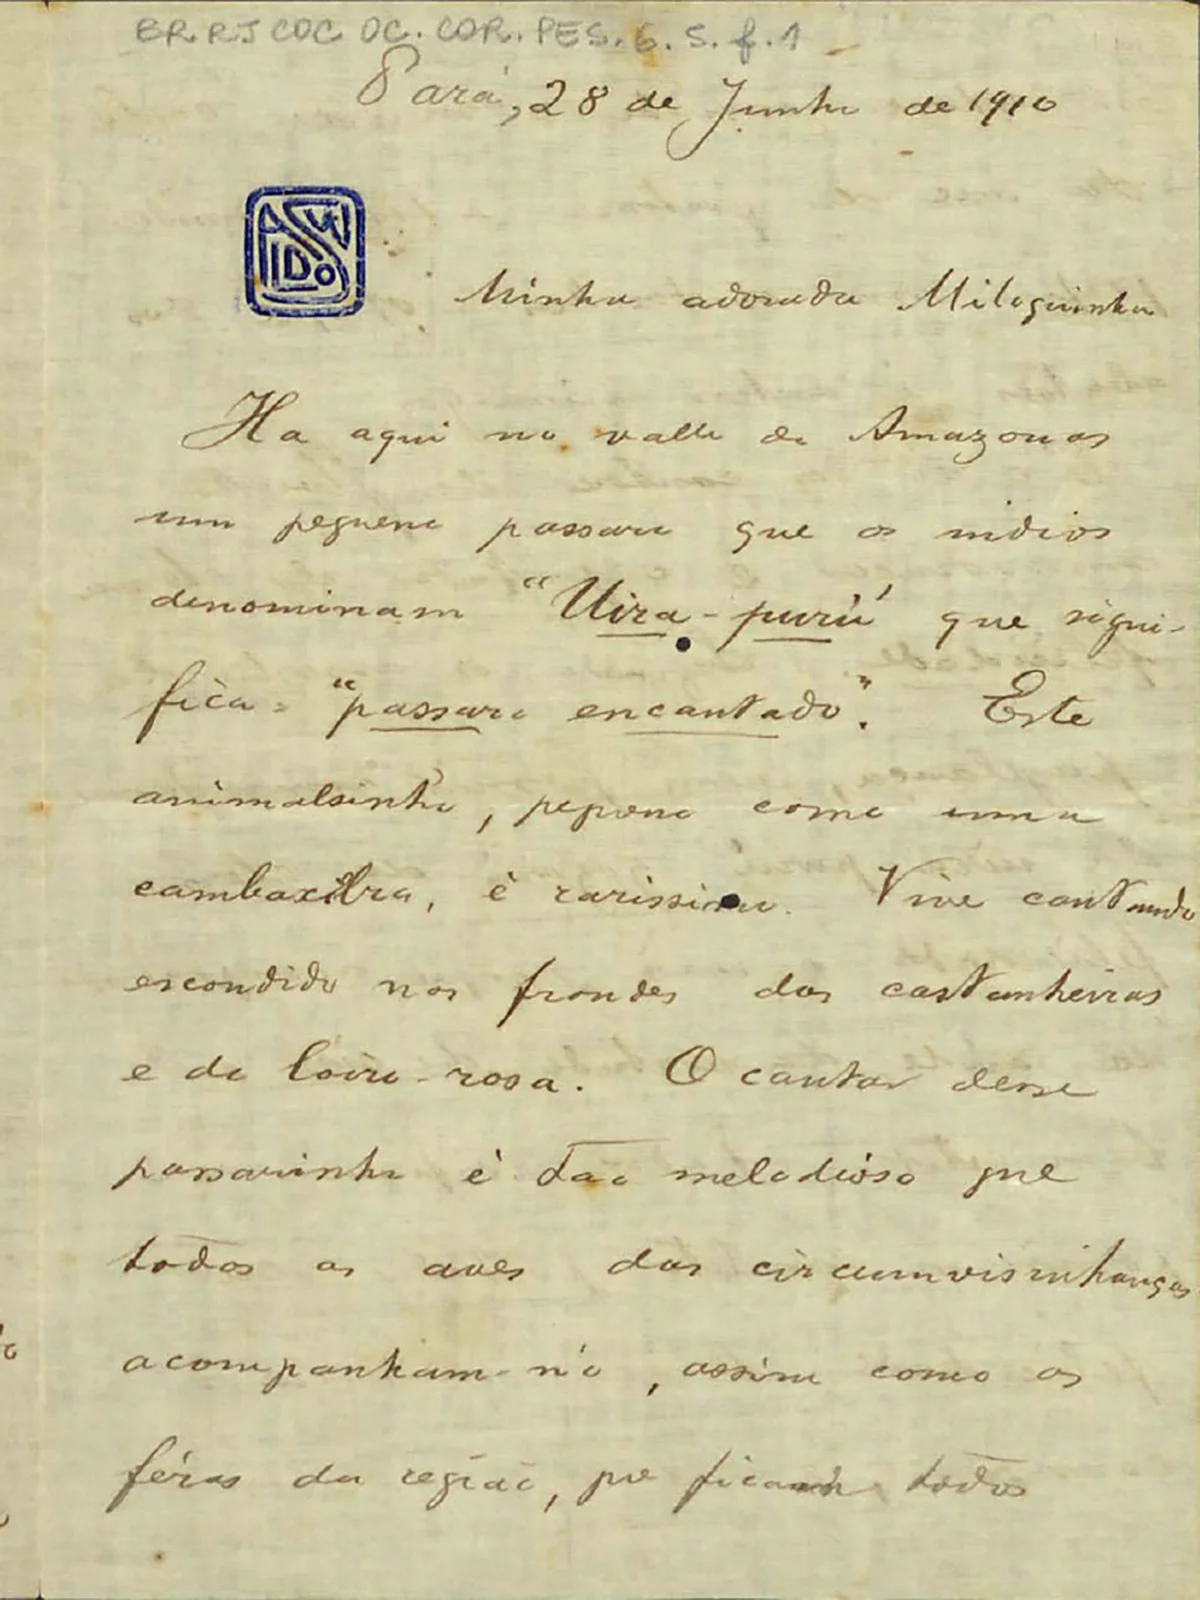 BR.RJ COC OC. COR. PES. 6. S. f. 1
Pará, 28 de Junho de 1910
OSWALDO
Minha adorada Miloquinha
Ha aqui no valle do Amazonas
um pequeno passaro que os indios
denominam "Uira-purú" que signi-
fica = "passaro encantado". Este
animalsinho, pequeno como uma
cambaxilra, é rarissimo. Vive cantando
escondido nas frondes das castanheiras
e do loiro-rosa. O cantar desse
passarinho é tão melodioso que
todas as aves das circumvisinhanças
acompanham-n'o, assim como as
féras da região, que ficam todos